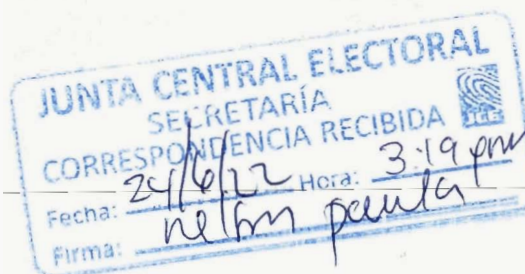 JUNTA CENTRAL ELECTORAL
SECRETARÍA
CORRESPONDENCIA RECIBIDA
Fecha: 24/6/22 Hora: 3:19 pm
Firma: nelson paula